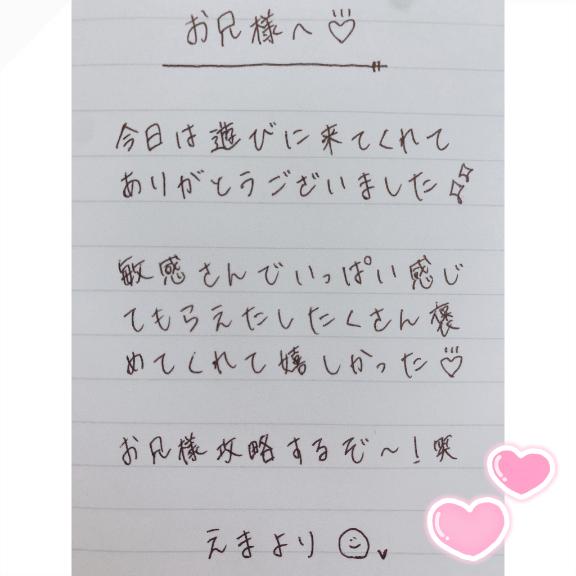 お兄様へ♡
今日は遊びに来てくれて
ありがとうございました✨
敏感さんでいっぱい感じ
てもらえたしたくさん褒
めてくれて嬉しかった♡
お兄様攻略するぞ～！笑
えまより☺♥